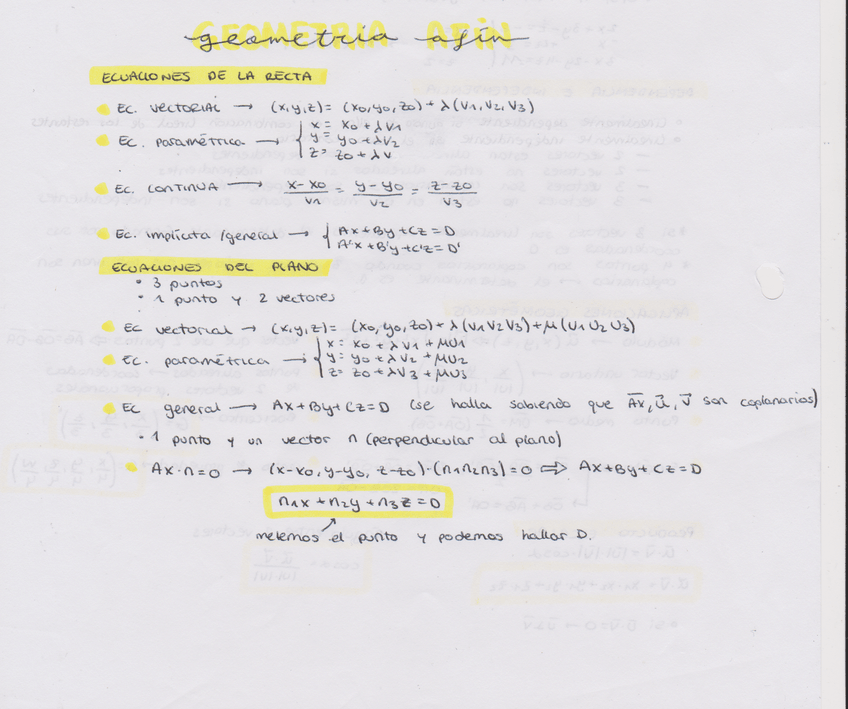 geometria afín
ECUACIONES DE LA RECTA
EC. VECTORIAL → (x,y,z) = (x0,y0,z0) + λ(v1,v2,v3)
Ec. paramétrica → { x = x0 + λv1
y = y0 + λv2
z = z0 + λv
Ec. CONTINUA → x-x0/v1 = y-y0/v2 = z-z0/v3
Ec. implícita/general → { Ax+By+Cz=D
A'x+B'y+C'z=D'
ECUACIONES DEL PLANO
• 3 puntos
• 1 punto y 2 vectores
Ec vectorial → (x,y,z) = (x0,y0,z0) + λ(v1 v2 v3) + μ(u1 u2 u3)
Ec. paramétrica → { x = x0 + λv1 + μu1
y = y0 + λv2 + μu2
z = z0 + λv3 + μu3
Ec general → Ax+By+Cz=D (se halla sabiendo que Ax, u, v son coplanarios)
• 1 punto y un vector n (perpendicular al plano)
Ax·n=0 → (x-x0, y-y0, z-z0)·(n1 n2 n3)=0 ⇒ Ax+By+Cz=D
n1x + n2y + n3z = D
metemos el punto y podemos hallar D.